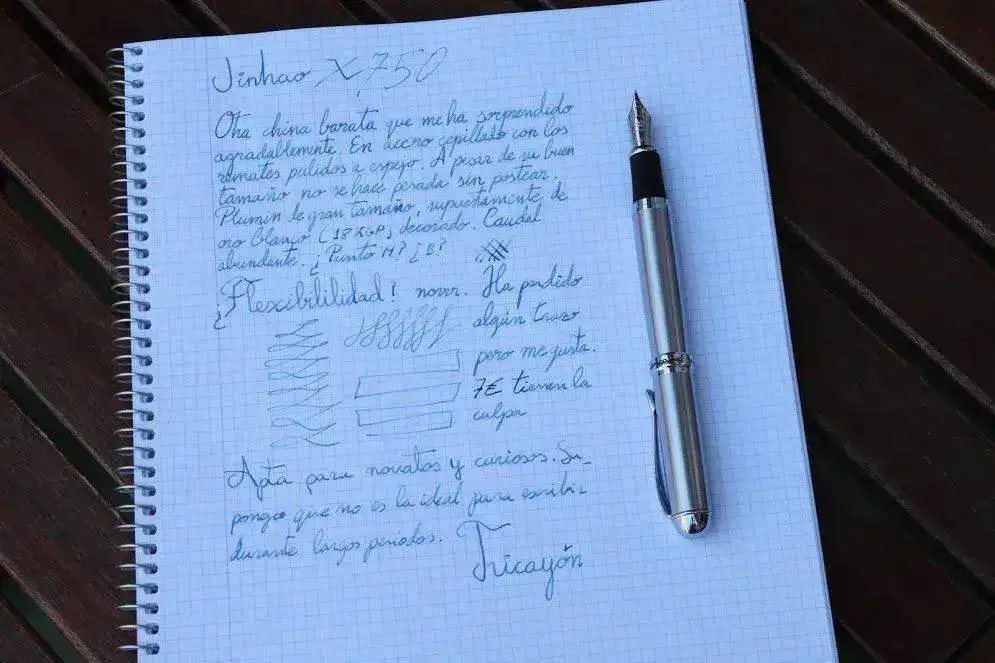 Jinhao X750
Otra china barata que me ha sorprendido
agradablemente. En acero cepillado con los
remates pulidos a espejo. A pesar de su buen
tamaño no se hace pesada sin postear.
Plumín de gran tamaño, supuestamente de
oro blanco (18 KGP) decorado. Caudal
abundante. ¿Punto M? ¿B?
¿Flexcibililidad? novrr. Ha perdido
algún trazo
pero me gusta.
7€ tienen la
culpa
Apta para novatos y curiosos. Su-
pongo que no es la ideal para escribir
durante largos periodos.
Tricayón